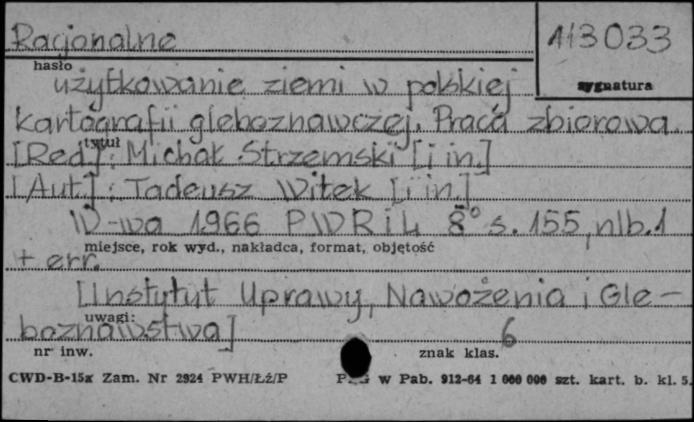 Racjonalne
113033
hasło
sygnatura
użytkowanie ziemi w polskiej
kartografii gleboznawczej. Praca zbiorowa.
tytuł
[Red.]: Michał Strzemski [i in.]
[Aut.]: Tadeusz Witek [i in.]
W-wa 1966 PWRiL 8° s. 155, nlb. 1
miejsce, rok wyd., nakładca, format, objętość
+ err.
[Instytut Uprawy, Nawożenia i Gle-
uwagi:
boznawstwa]
6
nr inw.
znak klas.
CWD-B-15x Zam. Nr 2924 PWH/Łż/P
w Pab. 912-64 1 000 000 szt. kart. b. kl. 5.